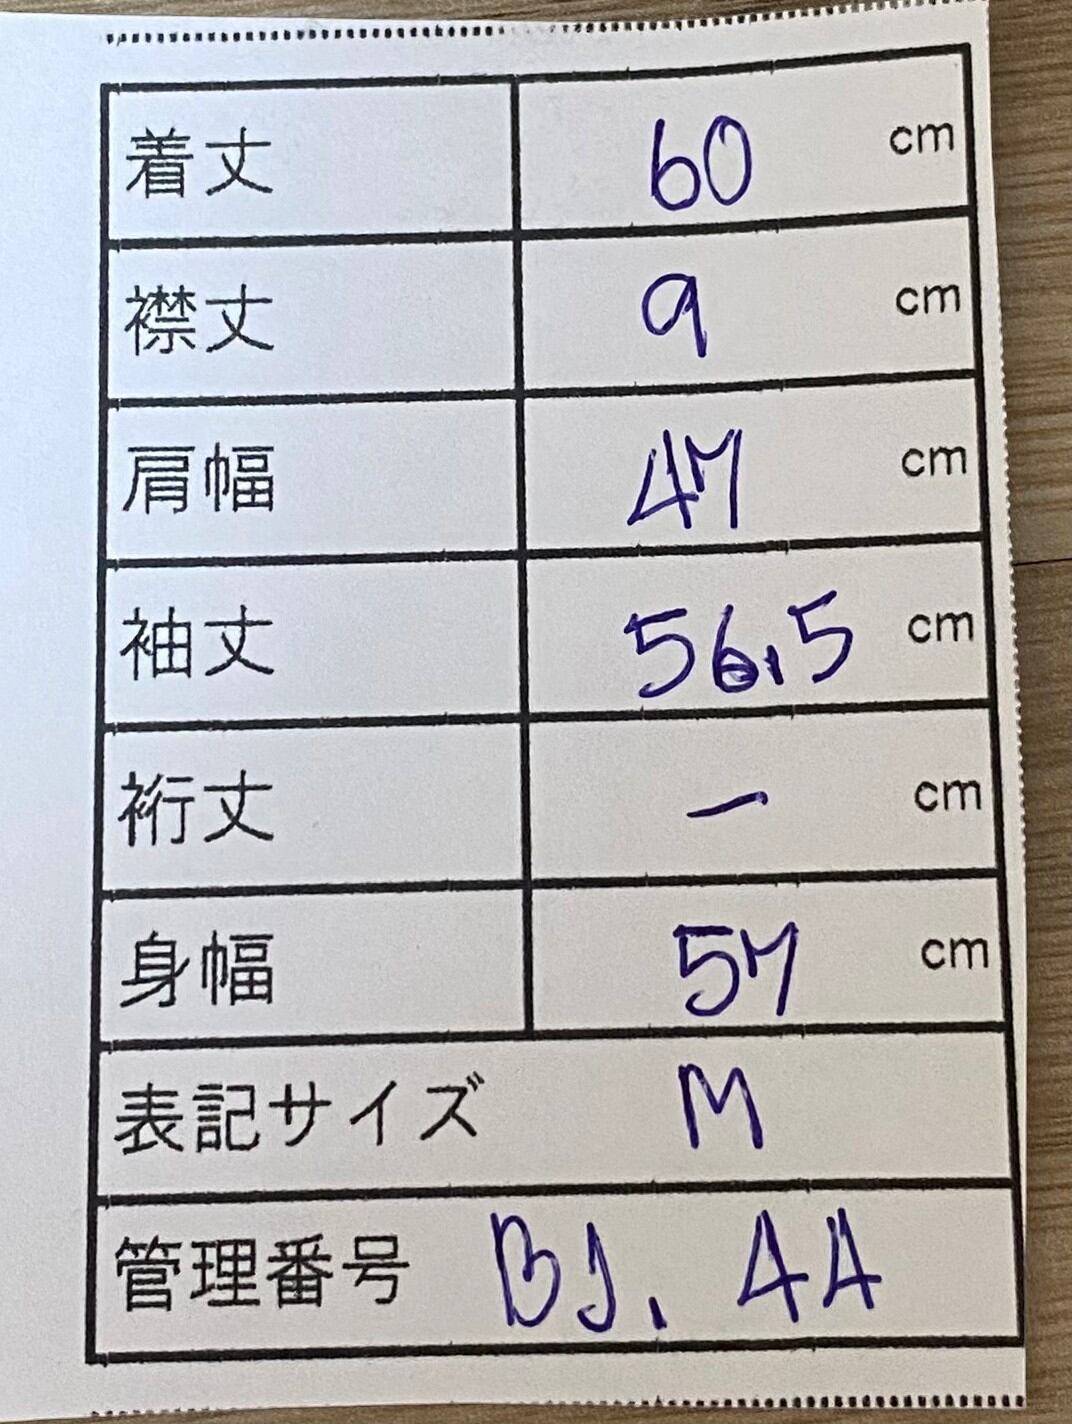 着丈 60 cm
襟丈 9 cm
肩幅 47 cm
袖丈 56.5 cm
裄丈 ー cm
身幅 57 cm
表記サイズ M
管理番号 BJ. 44